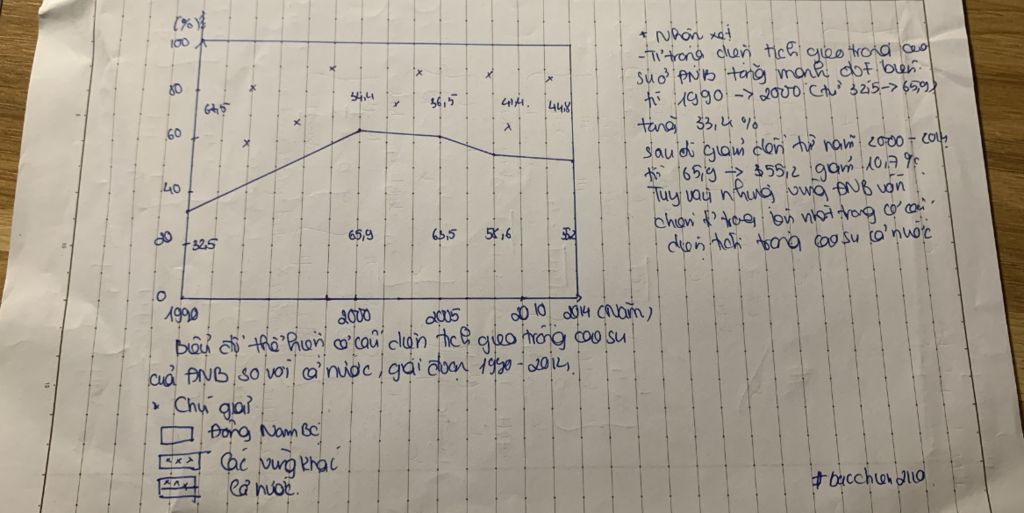 (%)
100
80
60
40
20
0
64,5
34,4
36,5
41,4
44,8
32,5
65,9
63,5
58,6
552
1990
2000
2005
2010
2014 (Năm)
Biểu đồ thể hiện cơ cấu diện tích gieo trồng cao su
của ĐNB so với cả nước, giai đoạn 1990-2014
* Chú giải
Đông Nam Bộ
Các vùng khác
Cả nước.
* Nhận xét
-Tỉ trọng diện tích gieo trồng cao
su ở ĐNB tăng mạnh đột biến
từ 1990 -> 2000 (từ 32,5 -> 65,9)
tăng 33,4 %
sau đó giảm dần từ năm 2000-2014
từ 65,9 -> 55,2 giảm 10,7%
Tuy vậy nhưng vùng ĐNB vẫn
chiếm tỉ trọng lớn nhất trong cơ cấu
diện tích trồng cao su cả nước
#bacchien2110